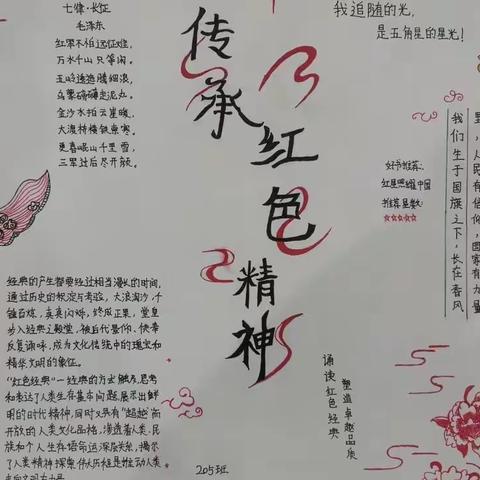 七律·长征
毛泽东
红军不怕远征难，
万水千山只等闲。
五岭逶迤腾细浪，
乌蒙磅礴走泥丸。
金沙水拍云崖暖，
大渡桥横铁索寒。
更喜岷山千里雪，
三军过后尽开颜。
传承红色精神
我追随的光，
是五角星的星光！
好书推荐：
红星照耀中国
推荐星数：
☆☆☆☆☆
里，人民有信仰，国家有力量
我们生于国旗之下，长在春风
经典的产生都要经过相当漫长的时间，
通过历史的积淀与考验，大浪淘沙，千
锤百炼，
终成正果，堂皇
步入经典之殿堂，被后代景仰、快拳
反复诵咏，成为文化传统中的瑰宝和
精华文明的象征。
"红色经典"一经典的方式触及、思考
和表达了人类生存基本问题，展示出鲜
明的时代精神，同时又具有"超越"而
开放的人类文化品格，渗透着人类、民
族和个人生存语命运深层关系，揭示
了人类精神探索伟大历程是推动人类
走向文明方力量
诵读红色经典
塑造卓越品质
205班